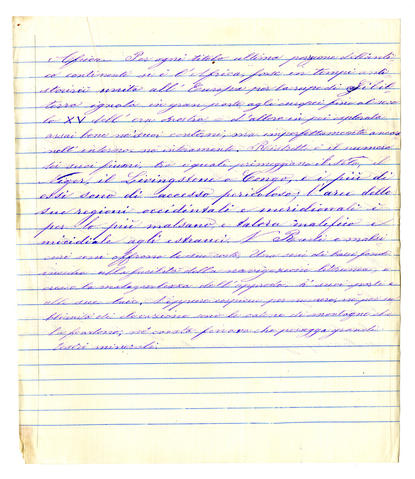 Africa. Per ogni titolo ultima
continenti ne è l'Africa, forse in tempi anti
storici unita all' Europa per la rupe di Gibil
terra ignota in gran parte agli europei fino al seco
lo XV dell' era nostra e d'altro in poi esplorata
assai bene ne' suoi contorni, ma imperfettamente ancora
nell' interno, ne intieramente. Ristretto è il numero
dei suoi fiumi, tra i quali primeggiano il Nilo, il
Niger, il Livingstone o Congo, e i più di
essi sono di accesso pericoloso; l'aree delle
sue regioni occidentali e meridionali è
per lo più malsano, e talora malefico e
micidiale agli estranei.
una serie di bassi fondi
alla facilità della navigazione litoranea, e
dell' approdo a' suoi porti e
alle sue baie.
di elevazione sono le catene di montagne che
la; nè consta finora che posegga grandi
tesori minerali.